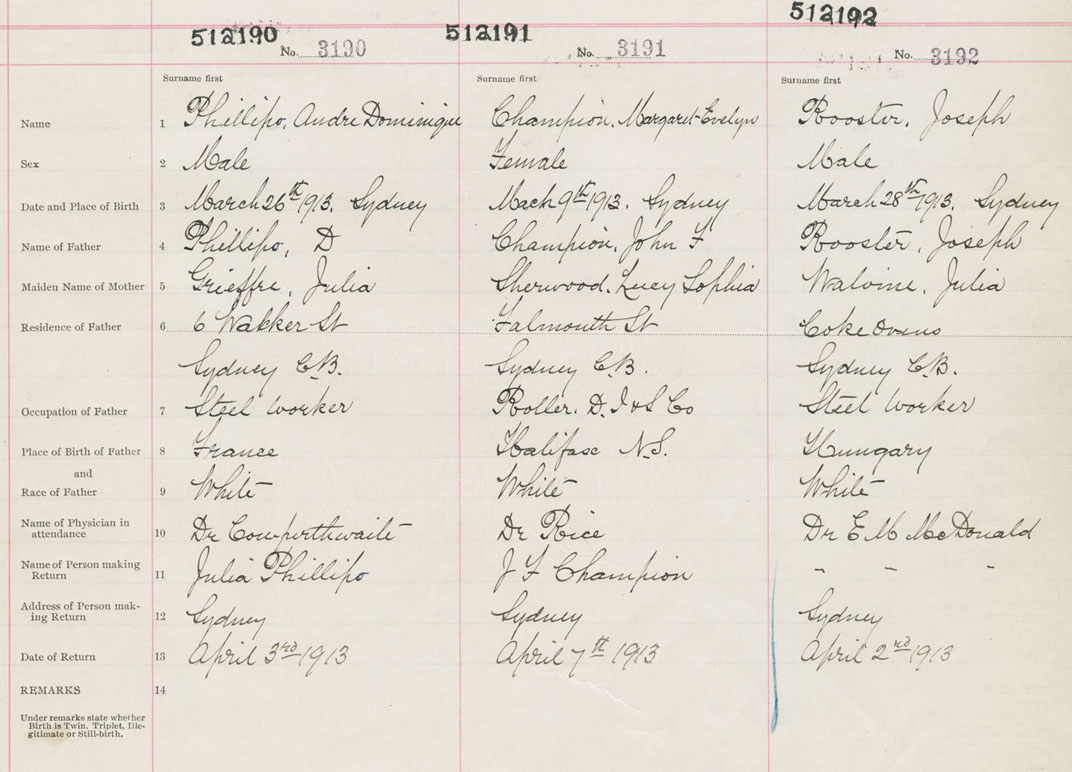 512190 512191 512192
No. 3190 No. 3191 No. 3192
Surname first Surname first Surname first
Name 1 Phillipo, Andre Dominique Champion, Margaret Evelyn Rooster, Joseph
Sex 2 Male Female Male
Date and Place of Birth 3 March 26th 1913. Sydney Mach 9th 1913. Sydney March 28th 1913. Sydney
Name of Father 4 Phillipo, D Champion, John F Rooster, Joseph
Maiden Name of Mother 5 Grieffre, Julia Sherwood, Lucy Sophia Walvine, Julia
Residence of Father 6 6 Wakker St Falmouth St Coke Ovens
Sydney C.B. Sydney C.B. Sydney C.B.
Occupation of Father 7 Steel Worker Roller. D. I & S Co Steel Worker
Place of Birth of Father 8 France Halifax N.S. Hungary
and
Race of Father 9 White White White
Name of Physician in
attendance 10 Dr Cowperthwaite Dr Rice Dr E M McDonald
Name of Person making
Return 11 Julia Phillipo J F Champion " " "
Address of Person mak-
ing Return 12 Sydney Sydney Sydney
Date of Return 13 April 3rd 1913 April 7th 1913 April 2nd 1913
REMARKS 14
Under remarks state whether
Birth is Twin, Triplet, Ille-
gitimate or Still-birth.